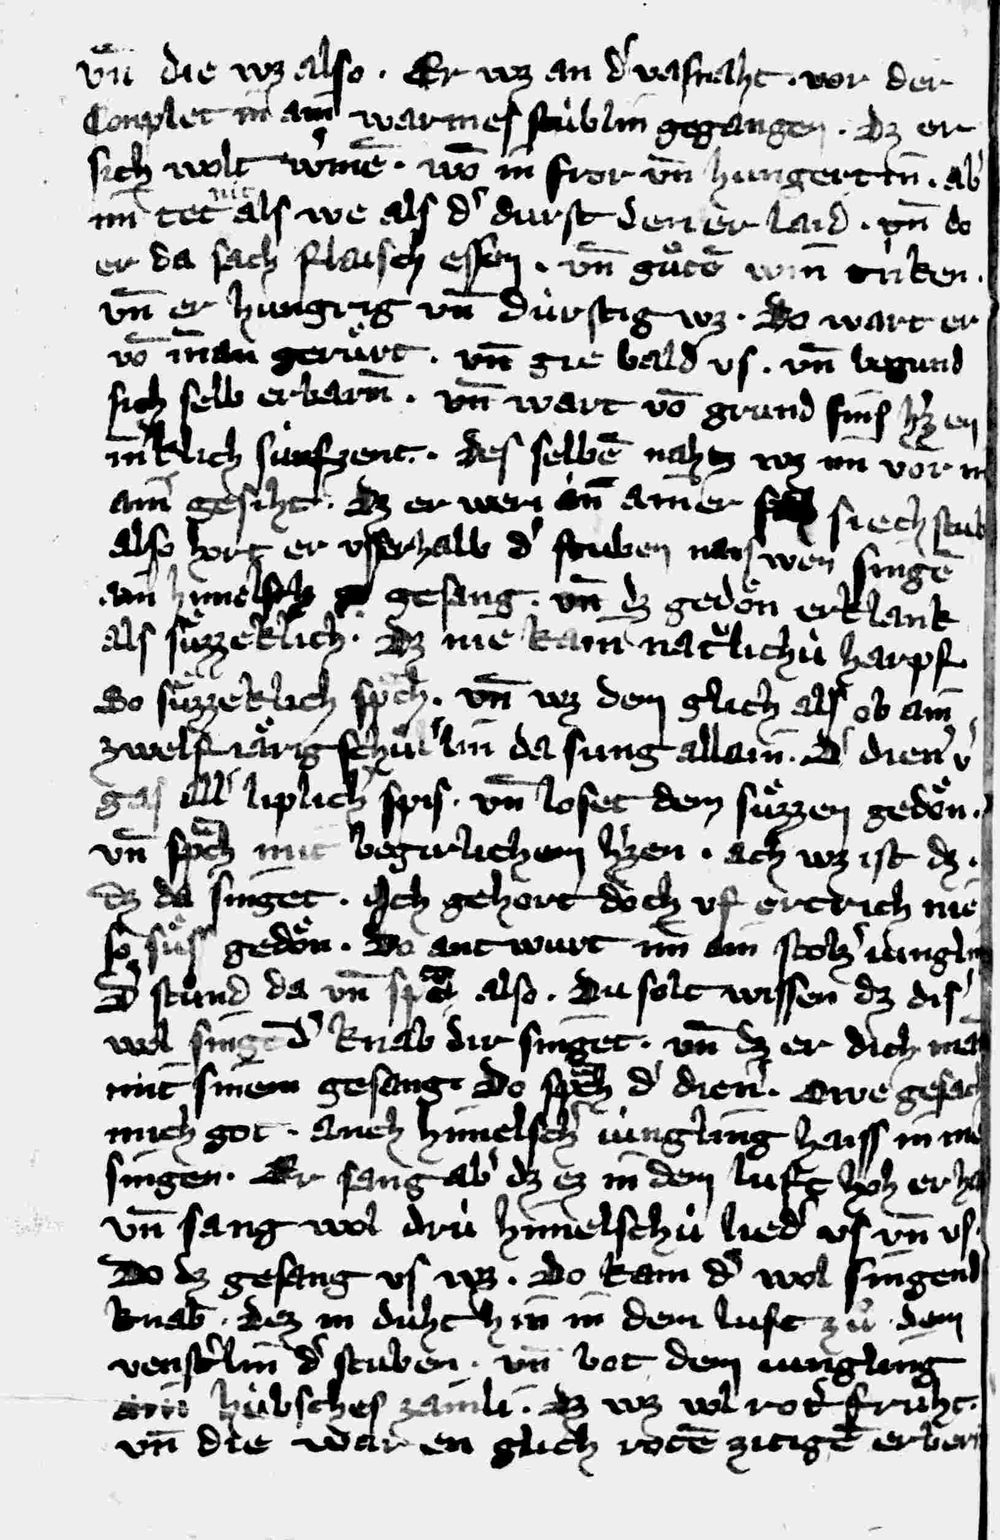 vn̄ die wz also . Er wz an d' vasnaht . vor der
Conplet in ain warmes stu̇blin gegangen . dz er
sich wolt w'mē . wō in fror vn̄ hungert in . ab'
im tet nit als we als d' durst den er laid . vn̄ do
er da sach flaisch essen . vn̄ gůtē win trīken .
vn̄ er hungrig vn̄ du̇rstig wz . Do wart er
vō īnan gerůrt . vn̄ gie bald vs . vn̄ begund
sich selb erbarm̄ . vn̄ wart vō grund sins h'zen
in̄klich su̇nfzent . des selbē nahtz wz im vor in
aim gesiht . dz er weri in ainer siech stub
also hort er vsserhalb d' stuben naiswen singē
ain himelsch gesang . vn̄ dz gedön erklank
als süzzeklich . dz nie kain natůrlichu̇ harpf
So süzzeklich sp̄ch . vn̄ wz dem glich als ob ain
zwelfiärig schůlerlin da sung allain . D' dien'
gas all' liplich' spis . vn̄ loset dem süzzen gedön .
vn̄ sp̄ch mit begirlichem h'zen . ach wz ist dz .
dz da singet . Ich gehort doch vf ertrich nie
so süs gedön . Do antwurt im ain stolz' iungling
D' stůnd da vn̄ sp̄ch also . Du solt wissen dz dis'
wol singēd' knab dir singet . vn̄ dz er dich main
mit sinem gesang . Do sp̄ch d' dien' . Owe gesach
mich got . auch himelsch' iu̇ngling haiss in me
singen . Er sang ab' dz ez in dem luft hoh erhal
vn̄ sang wol dru̇ himelschu̇ lied' vs vn̄ vs .
Do dz gesang vs wz . Do kam d' wol singend
knab . dez in duht hin in dem luft zů dem
venst'lin d' stuben . vn̄ bot dem iungling
ain hu̇bsches zainli . dz wz vol rot' fru̇ht .
vn̄ die waren glich rotē zitigē erberi